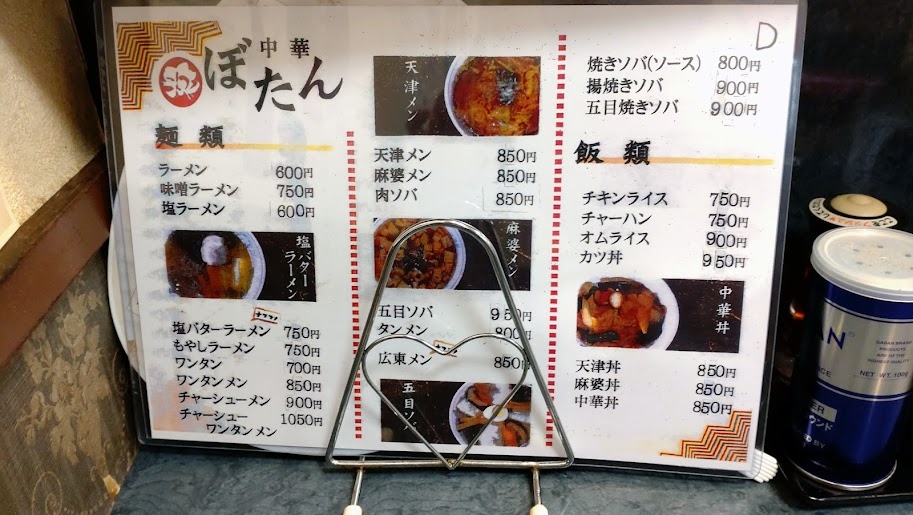 中華
ぼたん
D
麺類
ラーメン 600円
味噌ラーメン 750円
塩ラーメン 600円
塩バター
ラーメン
塩バターラーメン 750円
もやしラーメン 750円
ワンタン 700円
ワンタンメン 850円
チャーシューメン 900円
チャーシュー
ワンタンメン 1050円
天津メン
天津メン 850円
麻婆メン 850円
肉ソバ 850円
麻婆メン
五目ソバ 950円
タンメン 800円
広東メン 850円
五目ソバ
焼きソバ(ソース) 800円
揚焼きソバ 900円
五目焼きソバ 900円
飯類
チキンライス 750円
チャーハン 750円
オムライス 900円
カツ丼 950円
中華丼
天津丼 850円
麻婆丼 850円
中華丼 850円
NET WT. 100g